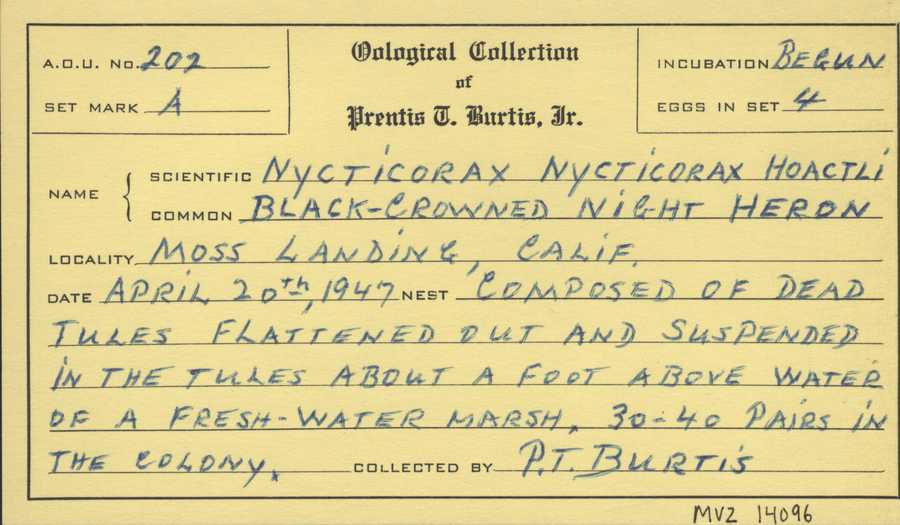 A.O.U. No. 202
SET MARK A
Oological Collection
of
Prentis T. Burtis, Jr.
INCUBATION BEGUN
EGGS IN SET 4
NAME { SCIENTIFIC NYCTICORAX NYCTICORAX HOACTLI
COMMON BLACK-CROWNED NIGHT HERON
LOCALITY MOSS LANDING, CALIF.
DATE APRIL 20th, 1947 NEST COMPOSED OF DEAD
TULES FLATTENED OUT AND SUSPENDED
IN THE TULES ABOUT A FOOT ABOVE WATER
OF A FRESH-WATER MARSH. 30-40 PAIRS IN
THE COLONY. COLLECTED BY P.T. BURTIS
MVZ 14096